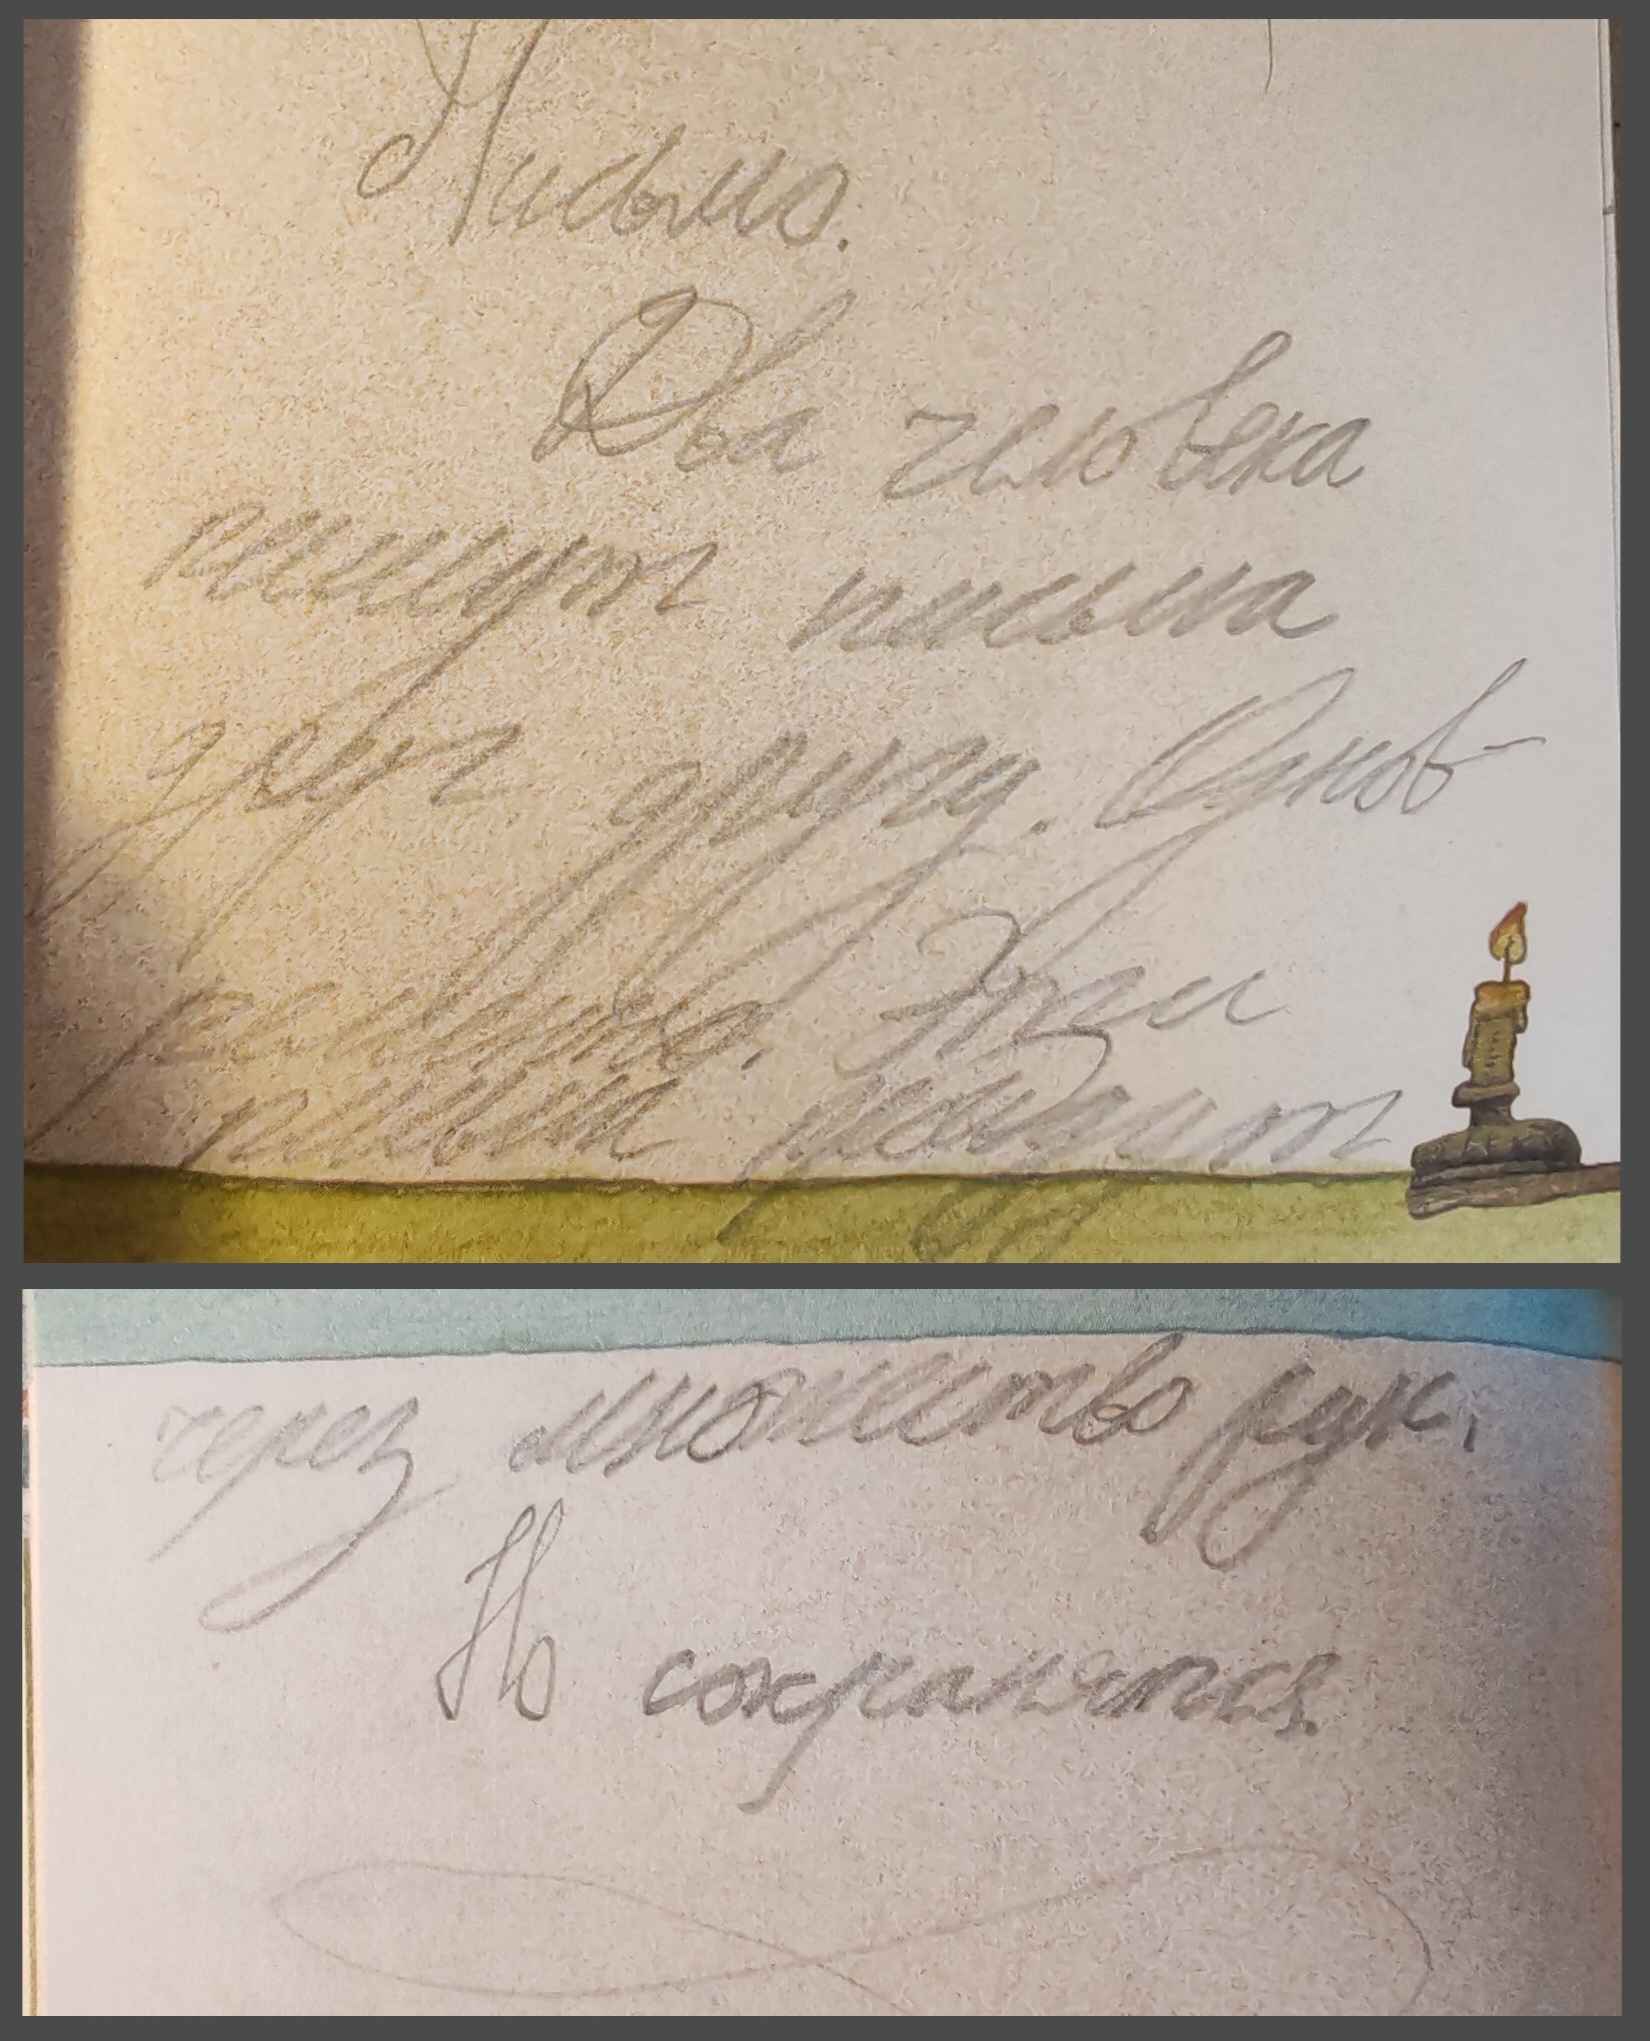 Письмо.
Два человека
пишут письма
друг другу. Оұнов-
ременно. Эти
письма
через множество рук.
Но сохраняются.